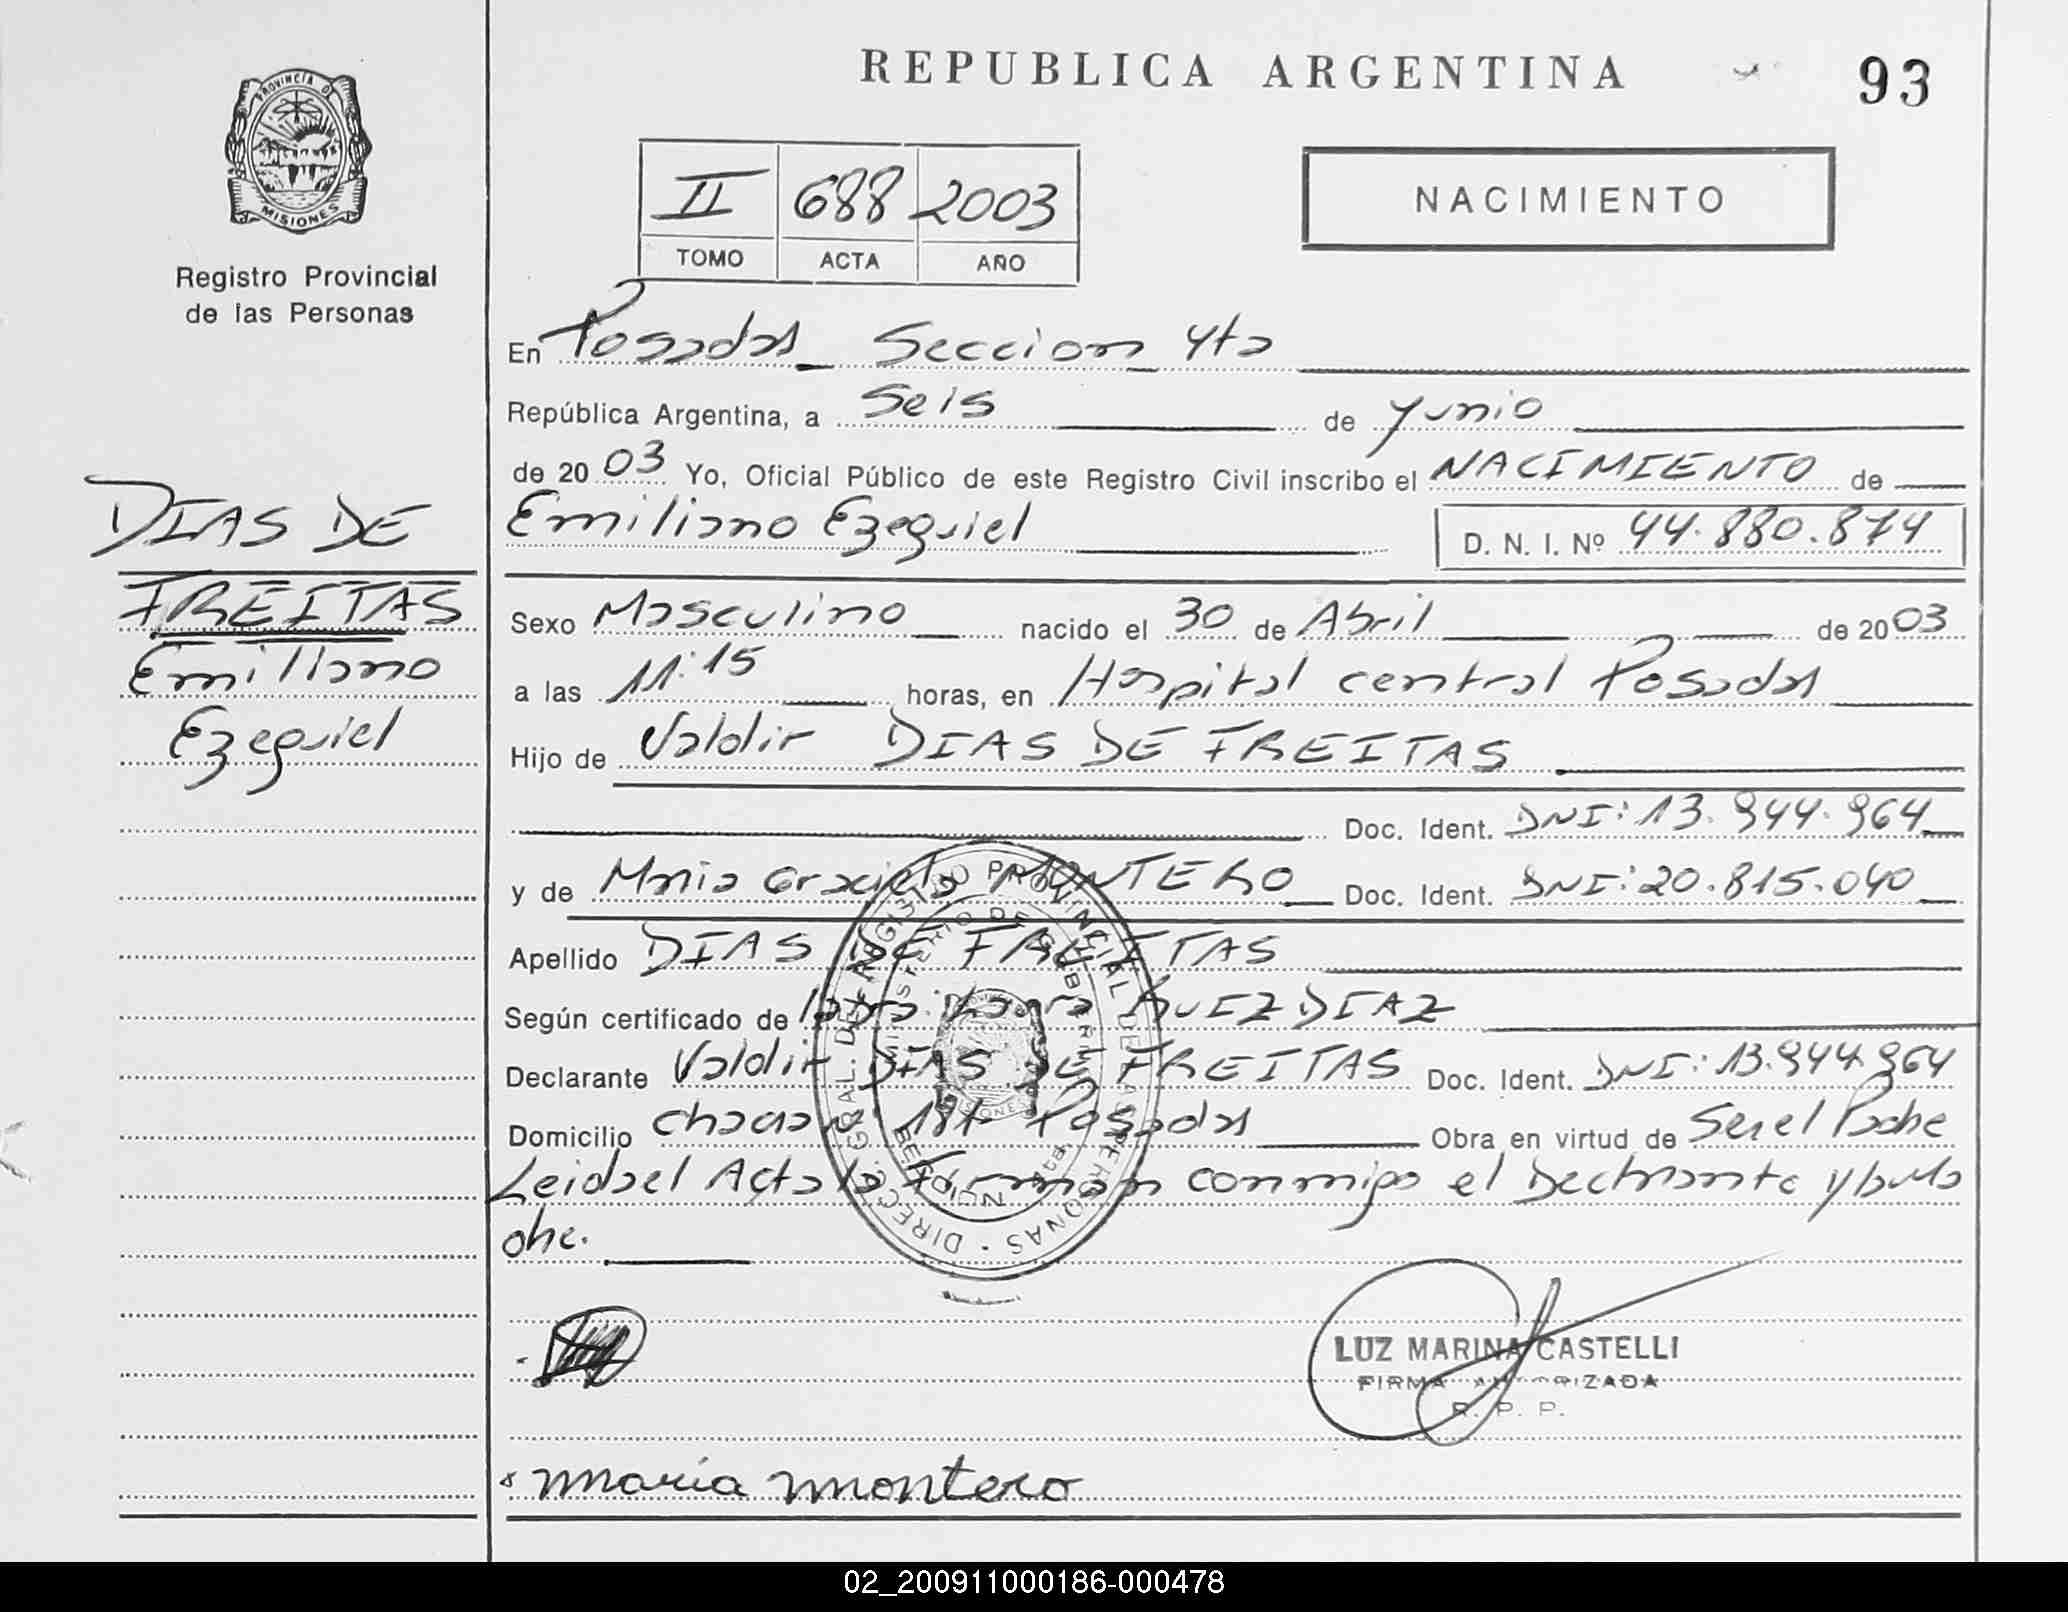 REPUBLICA ARGENTINA
93
PROVINCIA DE
MISIONES
Registro Provincial
de las Personas
II 688 2003
TOMO ACTA AÑO
NACIMIENTO
En Posadas Seccion 4ta
República Argentina, a Seis de Junio
de 2003 Yo, Oficial Público de este Registro Civil inscribo el NACIMIENTO de
Emiliano Ezequiel D. N. I. Nº 44.880.874
DIAS DE
FREITAS
Emiliano
Ezequiel
Sexo Masculino nacido el 30 de Abril de 2003
a las 11:15 horas, en Hospital central Posadas
Hijo de Valdir DIAS DE FREITAS
Doc. Ident. DNI: 13.944.964
y de Maria Graciela MONTERO Doc. Ident. DNI: 20.815.040
Apellido DIAS DE FREITAS
Según certificado de RUIZ DIAZ
Declarante Valdir DIAS DE FREITAS Doc. Ident. DNI: 13.944.964
Domicilio Posadas Obra en virtud de Ser el Padre
Leida el Acta la Firman conmigo el Declarante y la Ma
dre.
DIRECC. GRAL. DEL REGISTRO PROVINCIAL DE LAS PERSONAS
MINISTERIO DE GOBIERNO
LUZ MARINA CASTELLI
FIRMA AUTORIZADA
R. P. P.
maria montero
02_200911000186-000478